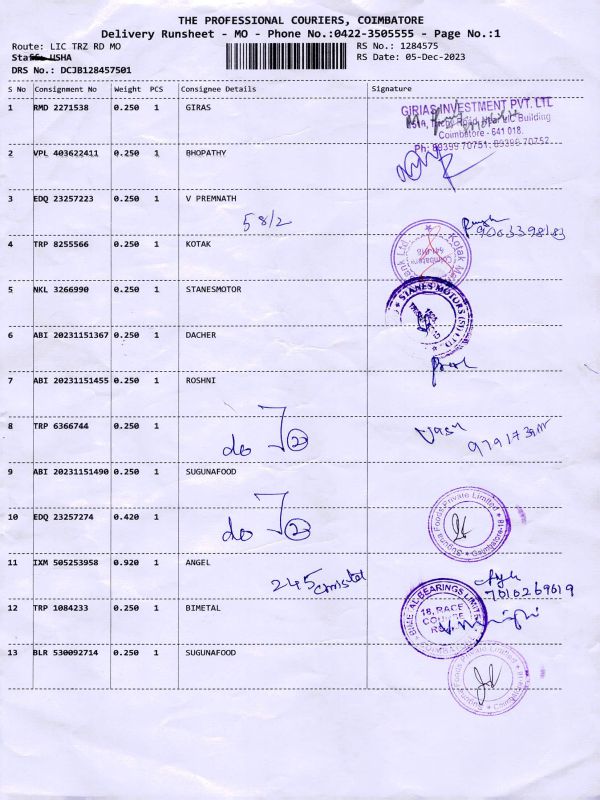 THE PROFESSIONAL COURIERS, COIMBATORE
Delivery Runsheet - MO - Phone No.:0422-3505555 - Page No.:1
Route: LIC TRZ RD MO
RS No.: 1284575
Staff: USHA
RS Date: 05-Dec-2023
DRS No.: DCJB128457501
S No Consignment No Weight PCS Consignee Details Signature
1 RMD 2271538 0.250 1 GIRAS
GIRIAS INVESTMENT PVT. LTD
Building
Coimbatore - 641 018.
Ph: 89399 70751, 89398 70752
2 VPL 403622411 0.250 1 BHOPATHY
3 EDQ 23257223 0.250 1 V PREMNATH
58/2
4 TRP 8255566 0.250 1 KOTAK
Kotak Ma
Bank Ltd.
Coimbatore
5 NKL 3266990 0.250 1 STANESMOTOR
STANES MOTORS (SI) LTD.
6 ABI 20231151367 0.250 1 DACHER
7 ABI 20231151455 0.250 1 ROSHNI
8 TRP 6366744 0.250 1
do 7 (2)
Vasu
9 ABI 20231151490 0.250 1 SUGUNAFOOD
10 EDQ 23257274 0.420 1
do 7 (2)
Suguna Foods Private Limited
Coimbatore
11 IXM 505253958 0.920 1 ANGEL
245
7010269619
12 TRP 1084233 0.250 1 BIMETAL
BIMETAL BEARINGS LIMITED
18, RACE
COURSE
13 BLR 530092714 0.250 1 SUGUNAFOOD
Suguna Foods Private Limited
Coimbatore